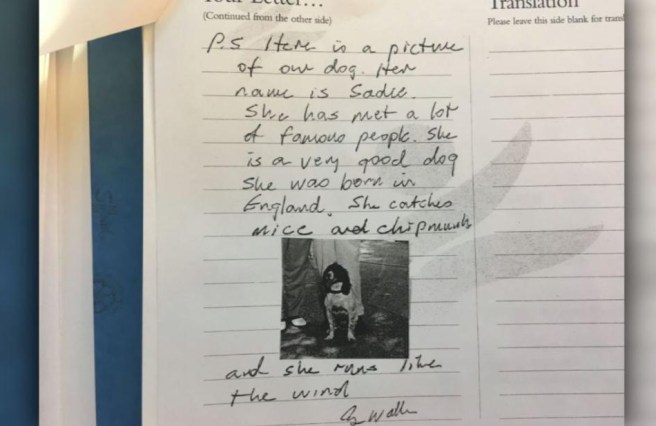 Your Letter...
Translation
(Continued from the other side)
Please leave this side blank for
P.S Here is a picture
of our dog. Her
name is Sadie.
She has met a lot
of famous people. She
is a very good dog
She was born in
England. She catches
mice and chipmunks
and she runs like
the wind
G Walker